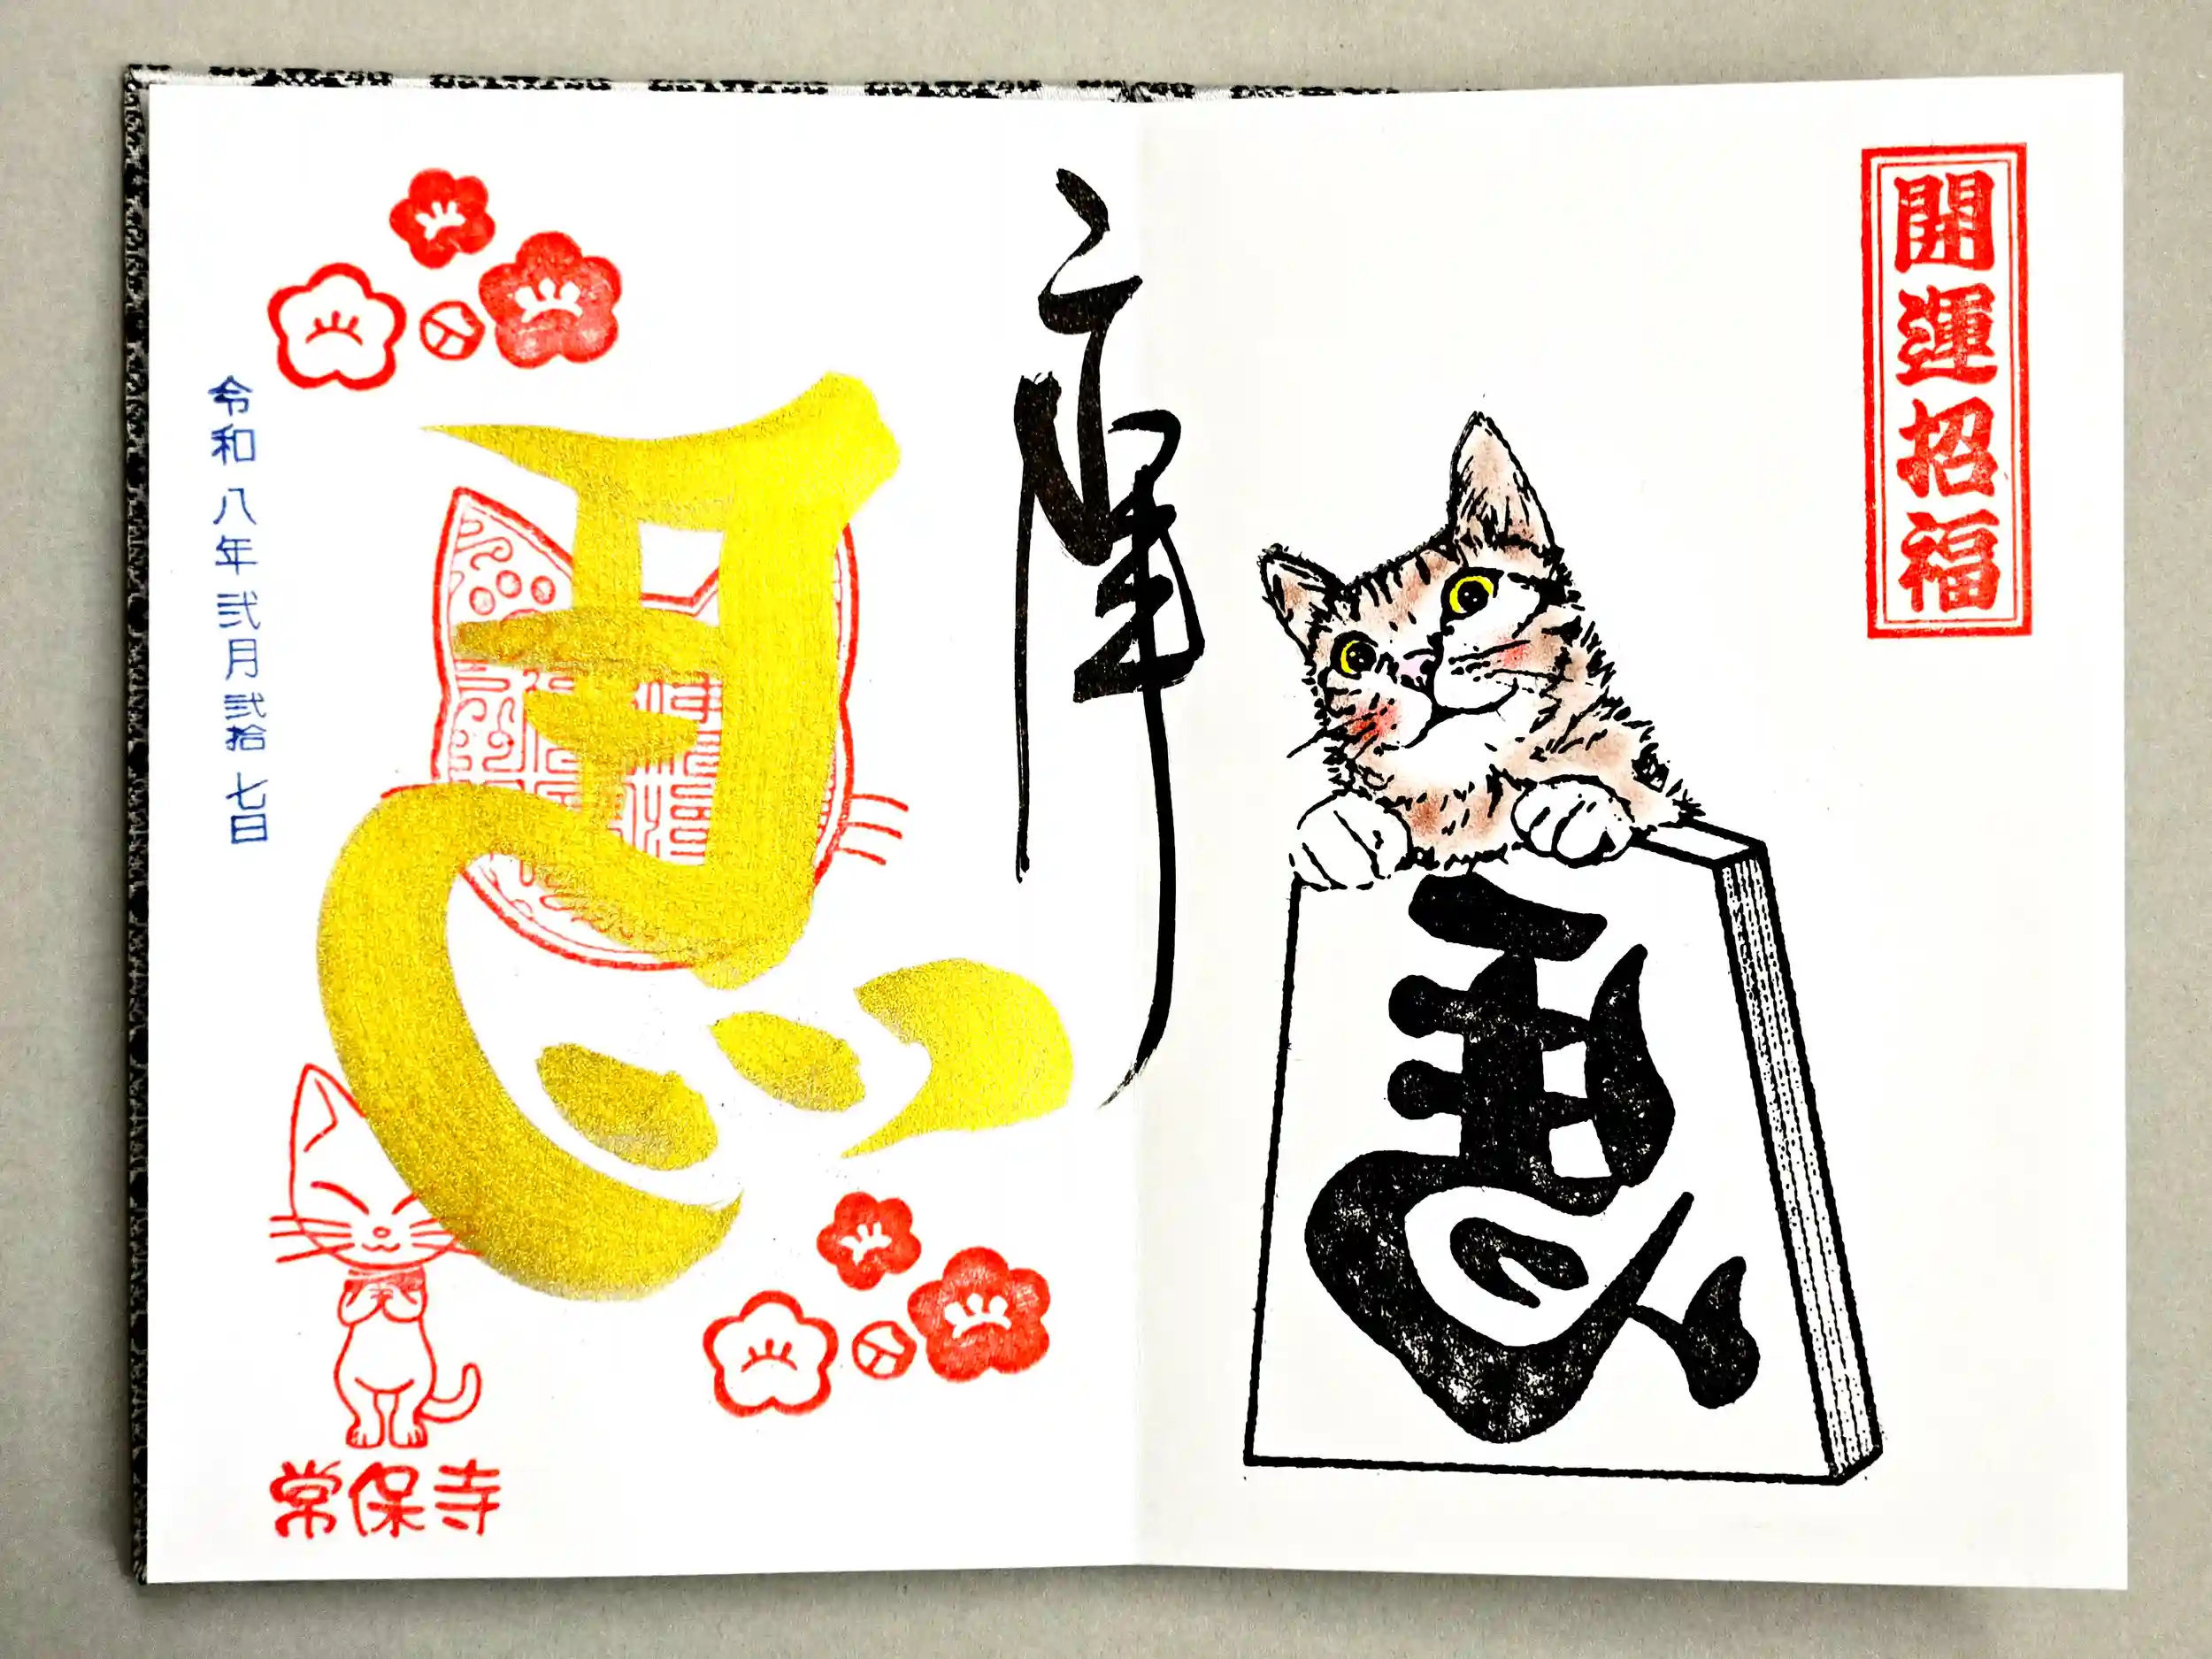 開運招福
馬
馬
令和八年弐月弐拾七日
常保寺